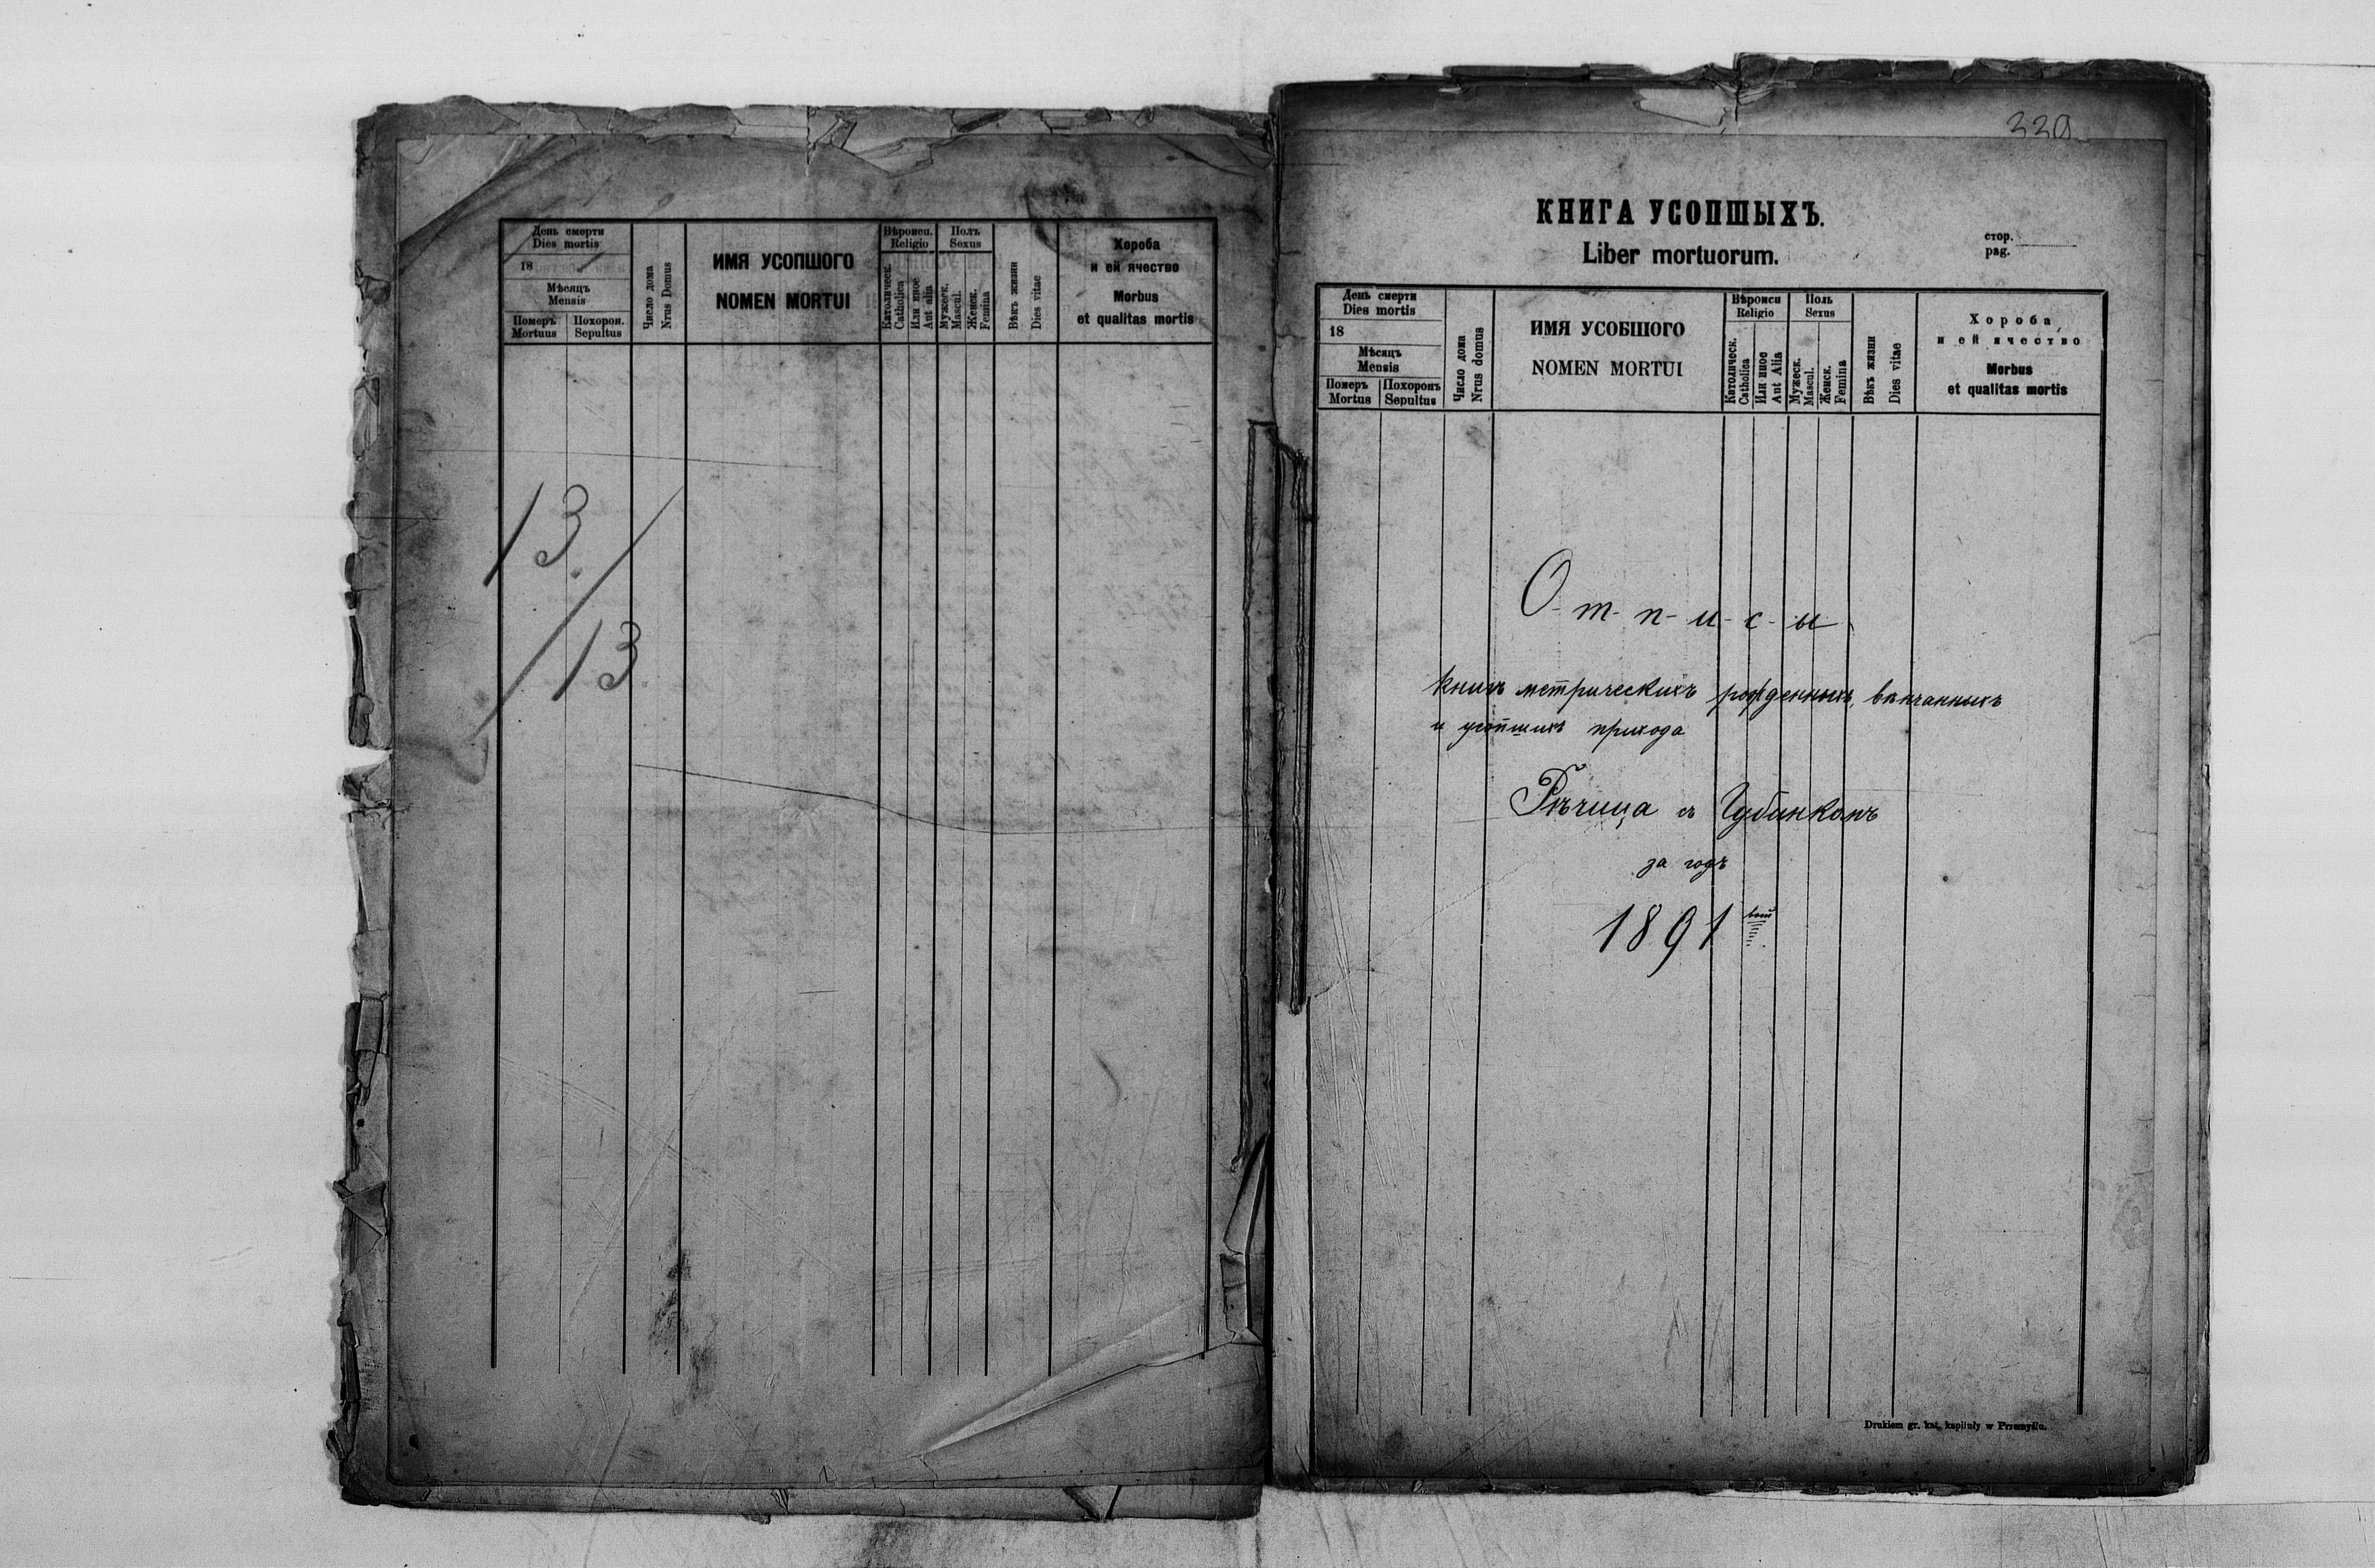 День смерти
Dies mortis
18
Мѣсяцъ
Mensis
Померъ
Mortuus
Похорон.
Sepultus
Число дома
Nrus Domus
ИМЯ УСОПШОГО
NOMEN MORTUI
Вѣроисп.
Religio
Католическ.
Catholica
Или иное
Aut alia
Полъ
Sexus
Мужеск.
Mascul.
Женск.
Femina
Вѣкъ жизни
Dies vitae
Хороба
и ей ячество
Morbus
et qualitas mortis
13.
13
339
КНИГА УСОПШЫХЪ.
Liber mortuorum.
стор.
pag.
День смерти
Dies mortis
18
Мѣсяцъ
Mensis
Померъ
Mortus
Похоронъ
Sepultus
Число дома
Nrus domus
ИМЯ УСОБШОГО
NOMEN MORTUI
Вѣроисп
Religio
Католическ.
Catholica
Или иное
Aut Alia
Поль
Sexus
Мужеск.
Mascul.
Женск.
Femina
Вѣкъ жизни
Dies vitae
Хороба
и ей ячество
Morbus
et qualitas mortis
О-т-п-и-с-ы
книгъ метрическихъ рожденныхъ, вѣнчанныхъ
и усопшихъ прихода
Рѣчица съ
за годъ
1891
Drukiem gr. kat. kapituły w Przemyślu.